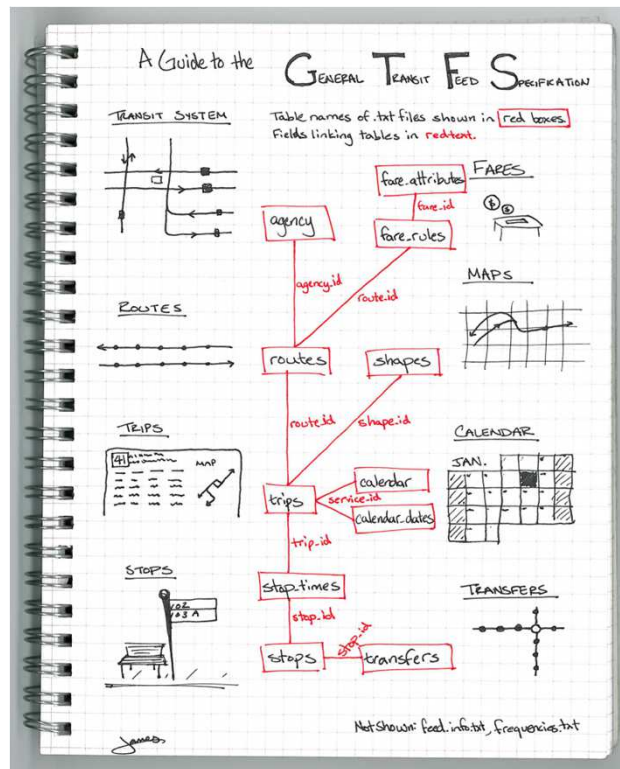 A Guide to the GENERAL TRANSIT FEED SPECIFICATION
TRANSIT SYSTEM
Table names of .txt files shown in red boxes.
Fields linking tables in red text.
fare_attributes
FARES
fare_id
agency
fare_rules
agency_id
route_id
MAPS
ROUTES
routes
shapes
route_id
shape_id
TRIPS
CALENDAR
41
MAP
JAN.
trips
service_id
calendar
calendar_dates
trip_id
STOPS
stop_times
TRANSFERS
102
103 A
stop_id
stops
stop_id
transfers
James
Not Shown: feed_info.txt, frequencies.txt